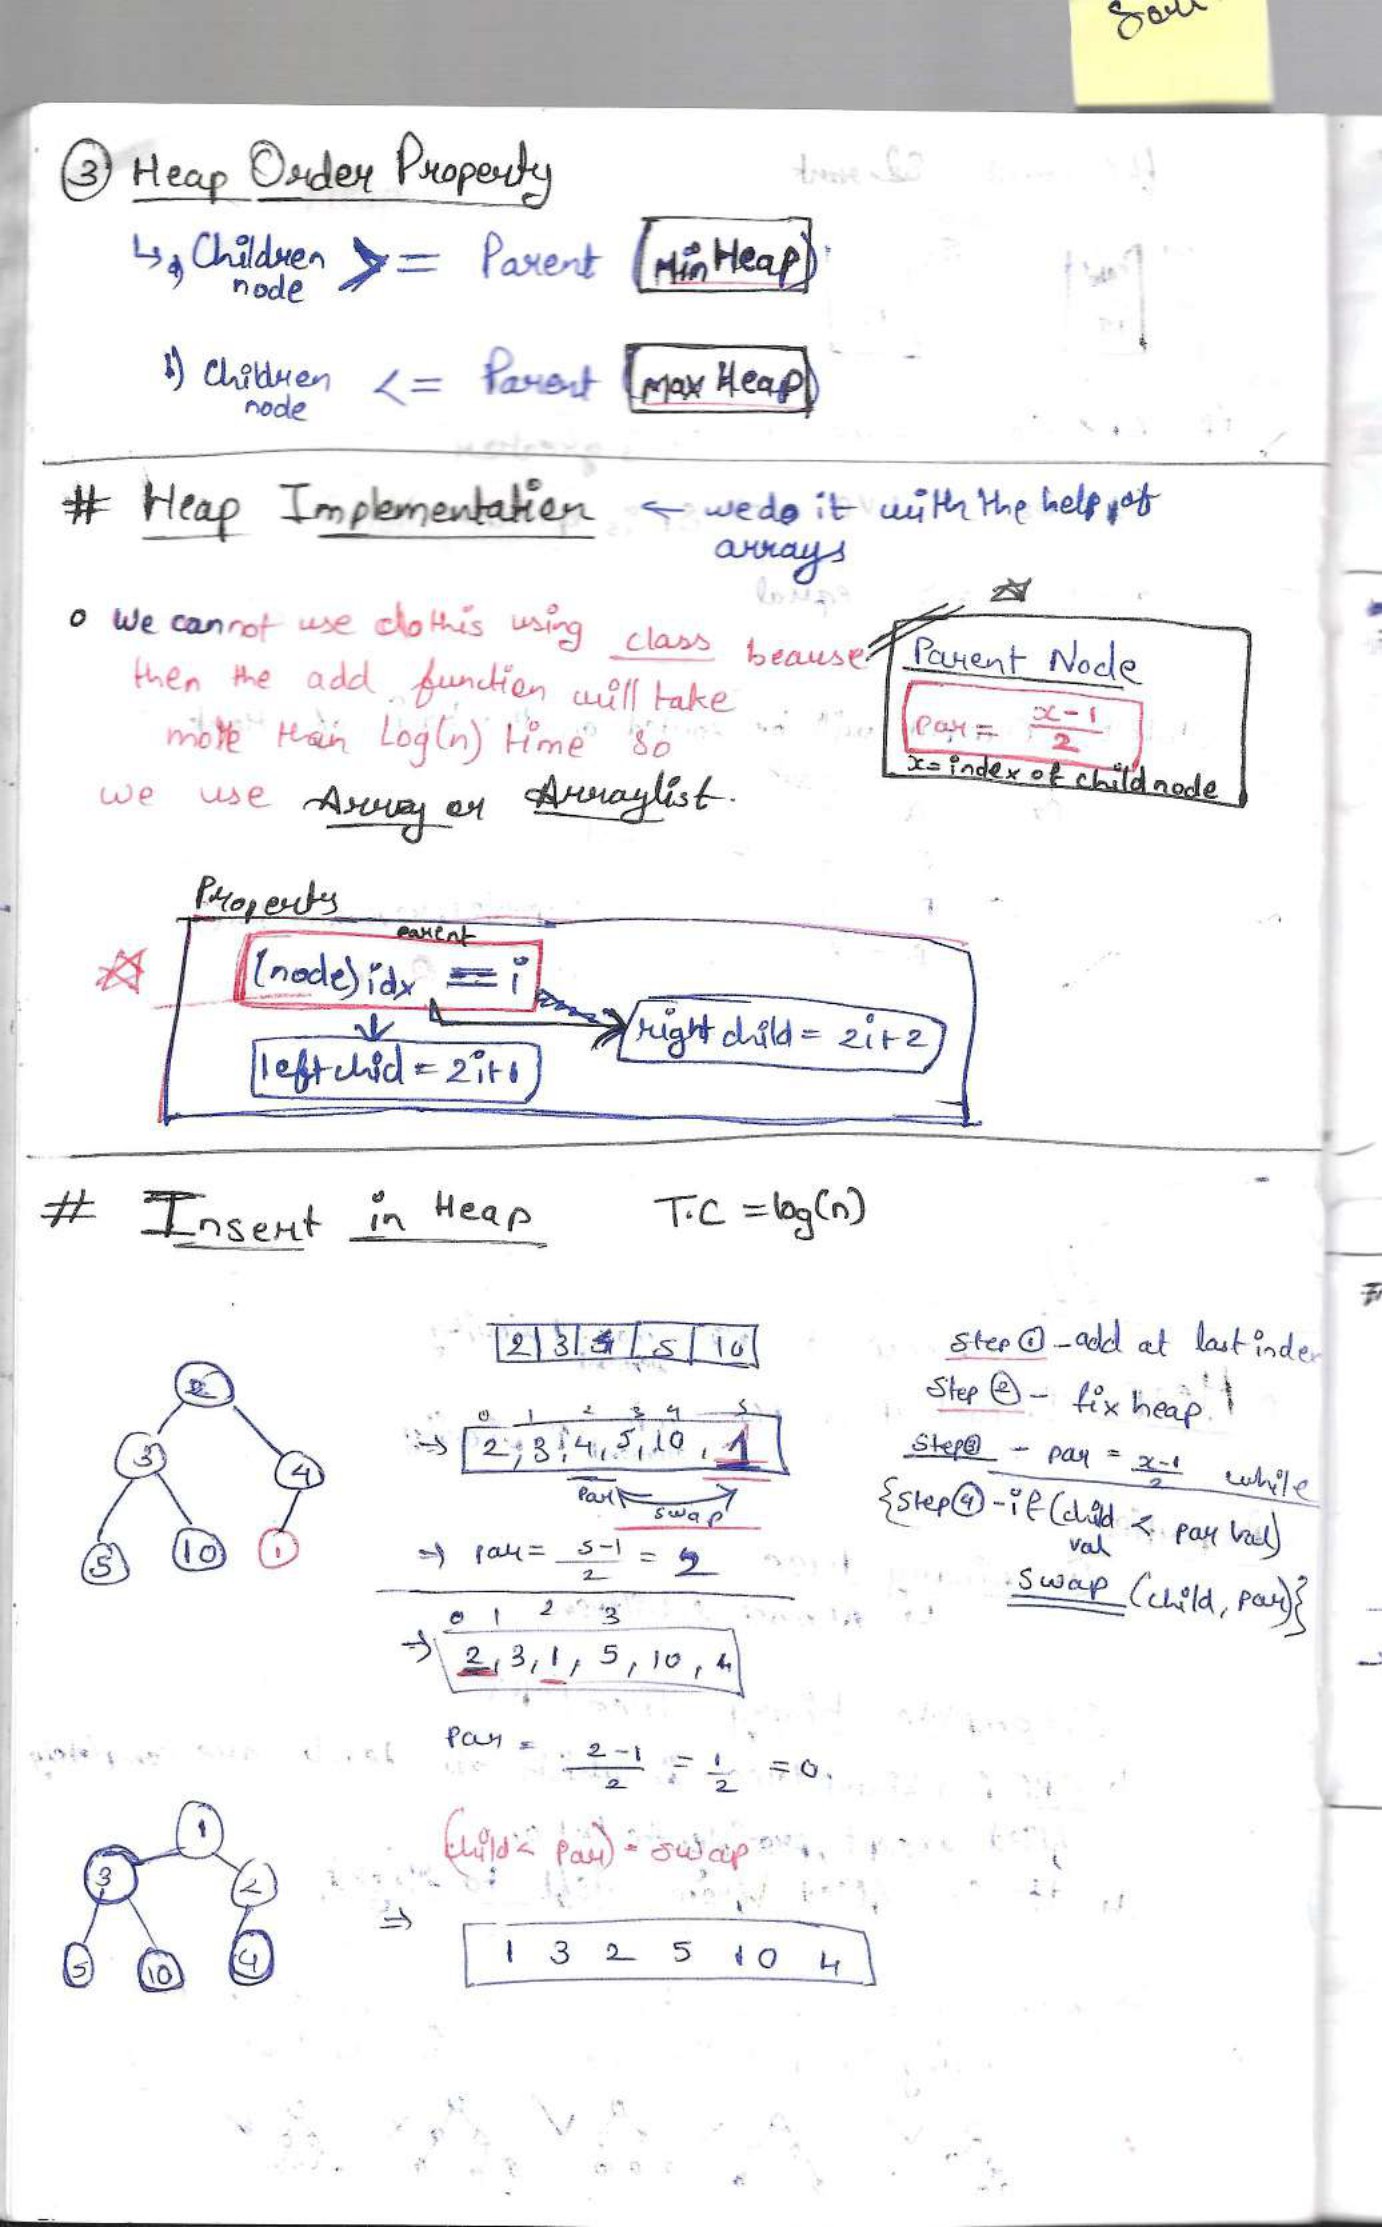 ③ Heap Order Property
↳ a) Children node >= Parent (Min Heap)
b) Children node <= Parent (Max Heap)
# Heap Implementation ← we do it with the help of
arrays
o We cannot use do this using class beause
then the add function will take
more than Log(n) time so
we use Array or Arraylist.
Parent Node
par = x-1/2
x = index of child node
Property
parent
(node) idx = i
left chid = 2i+1
right child = 2i+2
# Insert in Heap T.C = log(n)
2 | 3 | 4 | 5 | 10
2
3 4
5 10 1
0 1 2 3 4 5
⇒ 2, 3, 4, 5, 10, 1
par swap
⇒ par = 5-1/2 = 2
0 1 2 3
⇒ 2, 3, 1, 5, 10, 4
par = 2-1/2 = 1/2 = 0.
(child < par) - swap
⇒ 1 3 2 5 10 4
Step ① - add at last index
Step ② - fix heap
Step ③ - par = x-1/2 while
{Step ④ - if (child val < par val)
swap (child, par)}
1
3 2
5 10 4